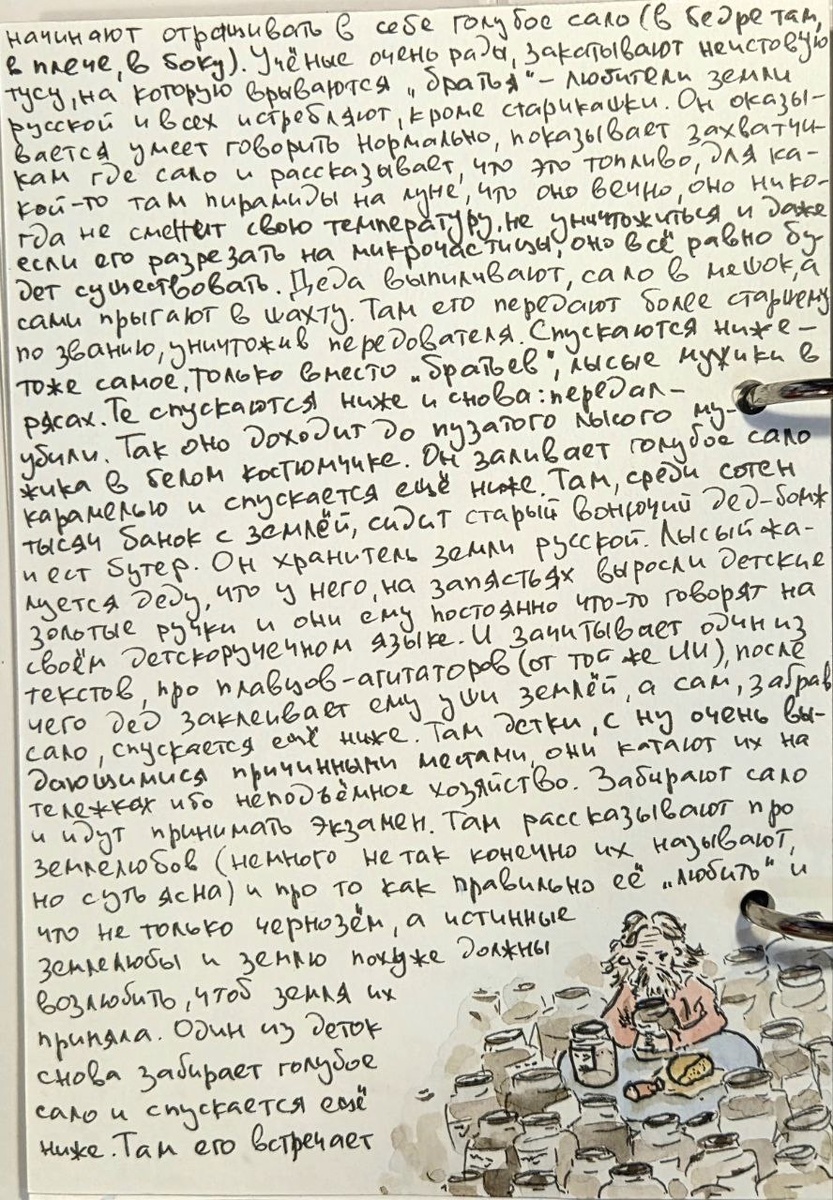 начинают отращивать в себе голубое сало (в бедре там,
в плече, в боку). Учёные очень рады, закатывают неистовую
тусу, на которую врываются „братья“ – любители земли
русской и всех истребляют, кроме старикашки. Он оказы-
вается умеет говорить нормально, показывает захватчи-
кам где сало и рассказывает, что это топливо, для ка-
кой-то там пирамиды на луне, что оно вечно, оно нико-
гда не сменит свою температуру, не уничтожиться и даже
если его разрезать на микрочастицы, оно всё равно бу-
дет существовать. Деда выпиливают, сало в мешок, а
сами прыгают в шахту. Там его передают более старшему
по званию, уничтожив передователя. Спускаются ниже –
тоже самое, только вместо „братьев“, лысые мужики в
рясах. Те спускаются ниже и снова: передал –
убили. Так оно доходит до пузатого лысого му-
жика в белом костюмчике. Он заливает голубое сало
карамелью и спускается ещё ниже. Там, среди сотен
тысяч банок с землёй, сидит старый вонючий дед-бомж
и ест бутер. Он хранитель земли русской. Лысый жа-
луется деду, что у него, на запястьях выросли детские
золотые ручки и они ему постоянно что-то говорят на
своём детскоручечном языке. И зачитывает один из
текстов, про плавцов-агитаторов (от той же ИИ), после
чего дед заклеивает ему уши землёй, а сам, забрав
сало, спускается ещё ниже. Там детки, с ну очень вы-
дающимися причинными местами, они катают их на
тележках ибо неподъёмное хозяйство. Забирают сало
и идут принимать экзамен. Там рассказывают про
землелюбов (немного не так конечно их называют,
но суть ясна) и про то как правильно её „любить“ и
что не только чернозём, а истинные
землелюбы и землю похуже должны
возлюбить, чтоб земля их
приняла. Один из деток
снова забирает голубое
сало и спускается ещё
ниже. Там его встречает